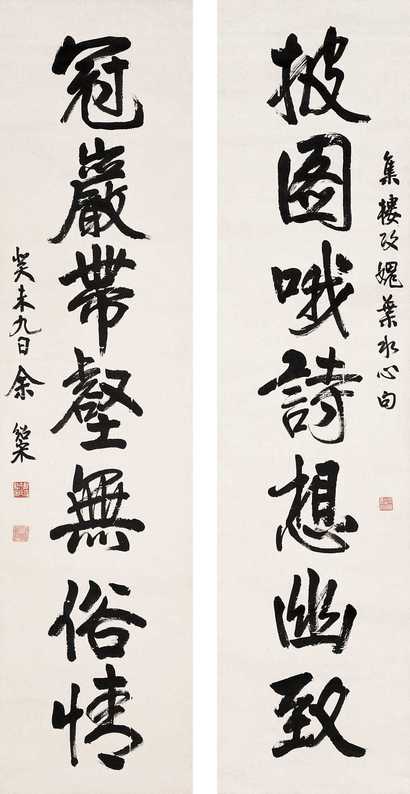 集樓攻媿葉水心句
披圖哦詩想幽致
冠巖帶壑無俗情
癸未九日余紹宋